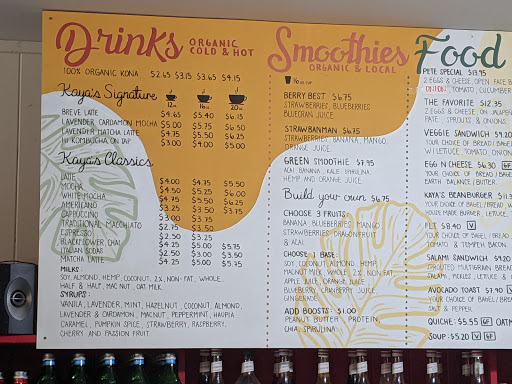 Drinks ORGANIC COLD & HOT
100% ORGANIC KONA $2.65 $3.15 $3.65 $4.15
Kaya's Signature 12oz 16oz 20oz
BREVE LATTE $4.65 $5.40 $6.15
LAVENDER CARDAMOM MOCHA $5.00 $5.75 $6.50
LAVENDER MATCHA LATTE $4.75 $5.50 $6.25
KOMBUCHA, ON TAP $3.00 $4.00 $5.00
Kaya's Classics
LATTE $4.00 $4.75 $5.50
MOCHA $4.50 $5.25 $6.00
WHITE MOCHA $4.75 $5.50 $6.25
AMERICANO $3.25 $3.50 $3.75
CAPPUCCINO $3.00 $3.75
TRADITIONAL MACCHIATO $2.75 $3.50
ESPRESSO $2.50 $3.25
BLACKFLOWER CHAI $4.25 $5.00 $5.75
ITALIAN SODAS $2.50 $3.00 $3.50
MATCHA LATTE $4.25 $5.00 $5.75
MILKS:
SOY, ALMOND, HEMP, COCONUT, 2%, NON-FAT, WHOLE,
HALF & HALF, MAC NUT, OAT MILK.
SYRUPS:
VANILLA, LAVENDER, MINT, HAZELNUT, COCONUT, ALMOND,
LAVENDER & CARDAMON, MACNUT, PEPPERMINT, HAUPIA
CARAMEL, PUMPKIN SPICE, STRAWBERRY, RASPBERRY,
CHERRY AND PASSION FRUIT.
Smoothies
ORGANIC & LOCAL
16 oz. CUP
BERRY BEST $6.75
STRAWBERRIES, BLUEBERRIES
BLUECRAN JUICE
STRAWBANMAN $6.75
STRAWBERRIES, BANANA, MANGO,
ORANGE JUICE
GREEN SMOOTHIE $7.95
ACAI, BANANA, KALE, SPIRULINA,
HEMP AND ORANGE JUICE
Build your own $6.75
CHOOSE 3 FRUITS:
BANANA, BLUEBERRIES, MANGO,
STRAWBERRIES, DRAGONFRUIT
& ACAI.
CHOOSE 1 BASE:
SOY, COCONUT, ALMOND, HEMP,
MACNUT MILK, WHOLE, 2%, NON-FAT,
APPLE JUICE, ORANGE JUICE
BLUEBERRY CRANBERRY JUICE
GINGERADE
ADD BOOSTS: $1.00
PEANUT BUTTER, PROTEIN,
CHIA, SPIRULINA
Food
PETE SPECIAL $13.95
2 EGGS & CHEESE, OPEN FACE
ONION, TOMATO, CUCUMBER
THE FAVORITE $12.35
2 EGGS & CHEESE, ON JALAPEN
PATE, SPROUTS & ONIONS
VEGGIE SANDWICH $9.20
YOUR CHOICE OF BREAD / BAGE
W/LETTUCE, TOMATO, ONION
EGG N CHEESE $6.30 GF
YOUR CHOICE OF BREAD / BAGE
EARTH BALANCE / BUTTER.
KAYA'S BEANBURGER $11.3
YOUR CHOICE OF BREAD / BAGEL W
HOUSE MADE BURGER, LETTUCE,
TLT $8.40 V
YOUR CHOICE OF BAGEL / BREAD
TOMATO & TEMPEH BACON.
SALAMI SANDWICH $9.20
SPROUTED MULTIGRAIN BREAD
SALAMI, PICKLES, LETTUCE &
AVOCADO TOAST $7.90 V
YOUR CHOICE OF BAGEL / BREAD
SALT & PEPPER.
QUICHE: $5.55 GF OATM
SOUP: $5.20 V GF